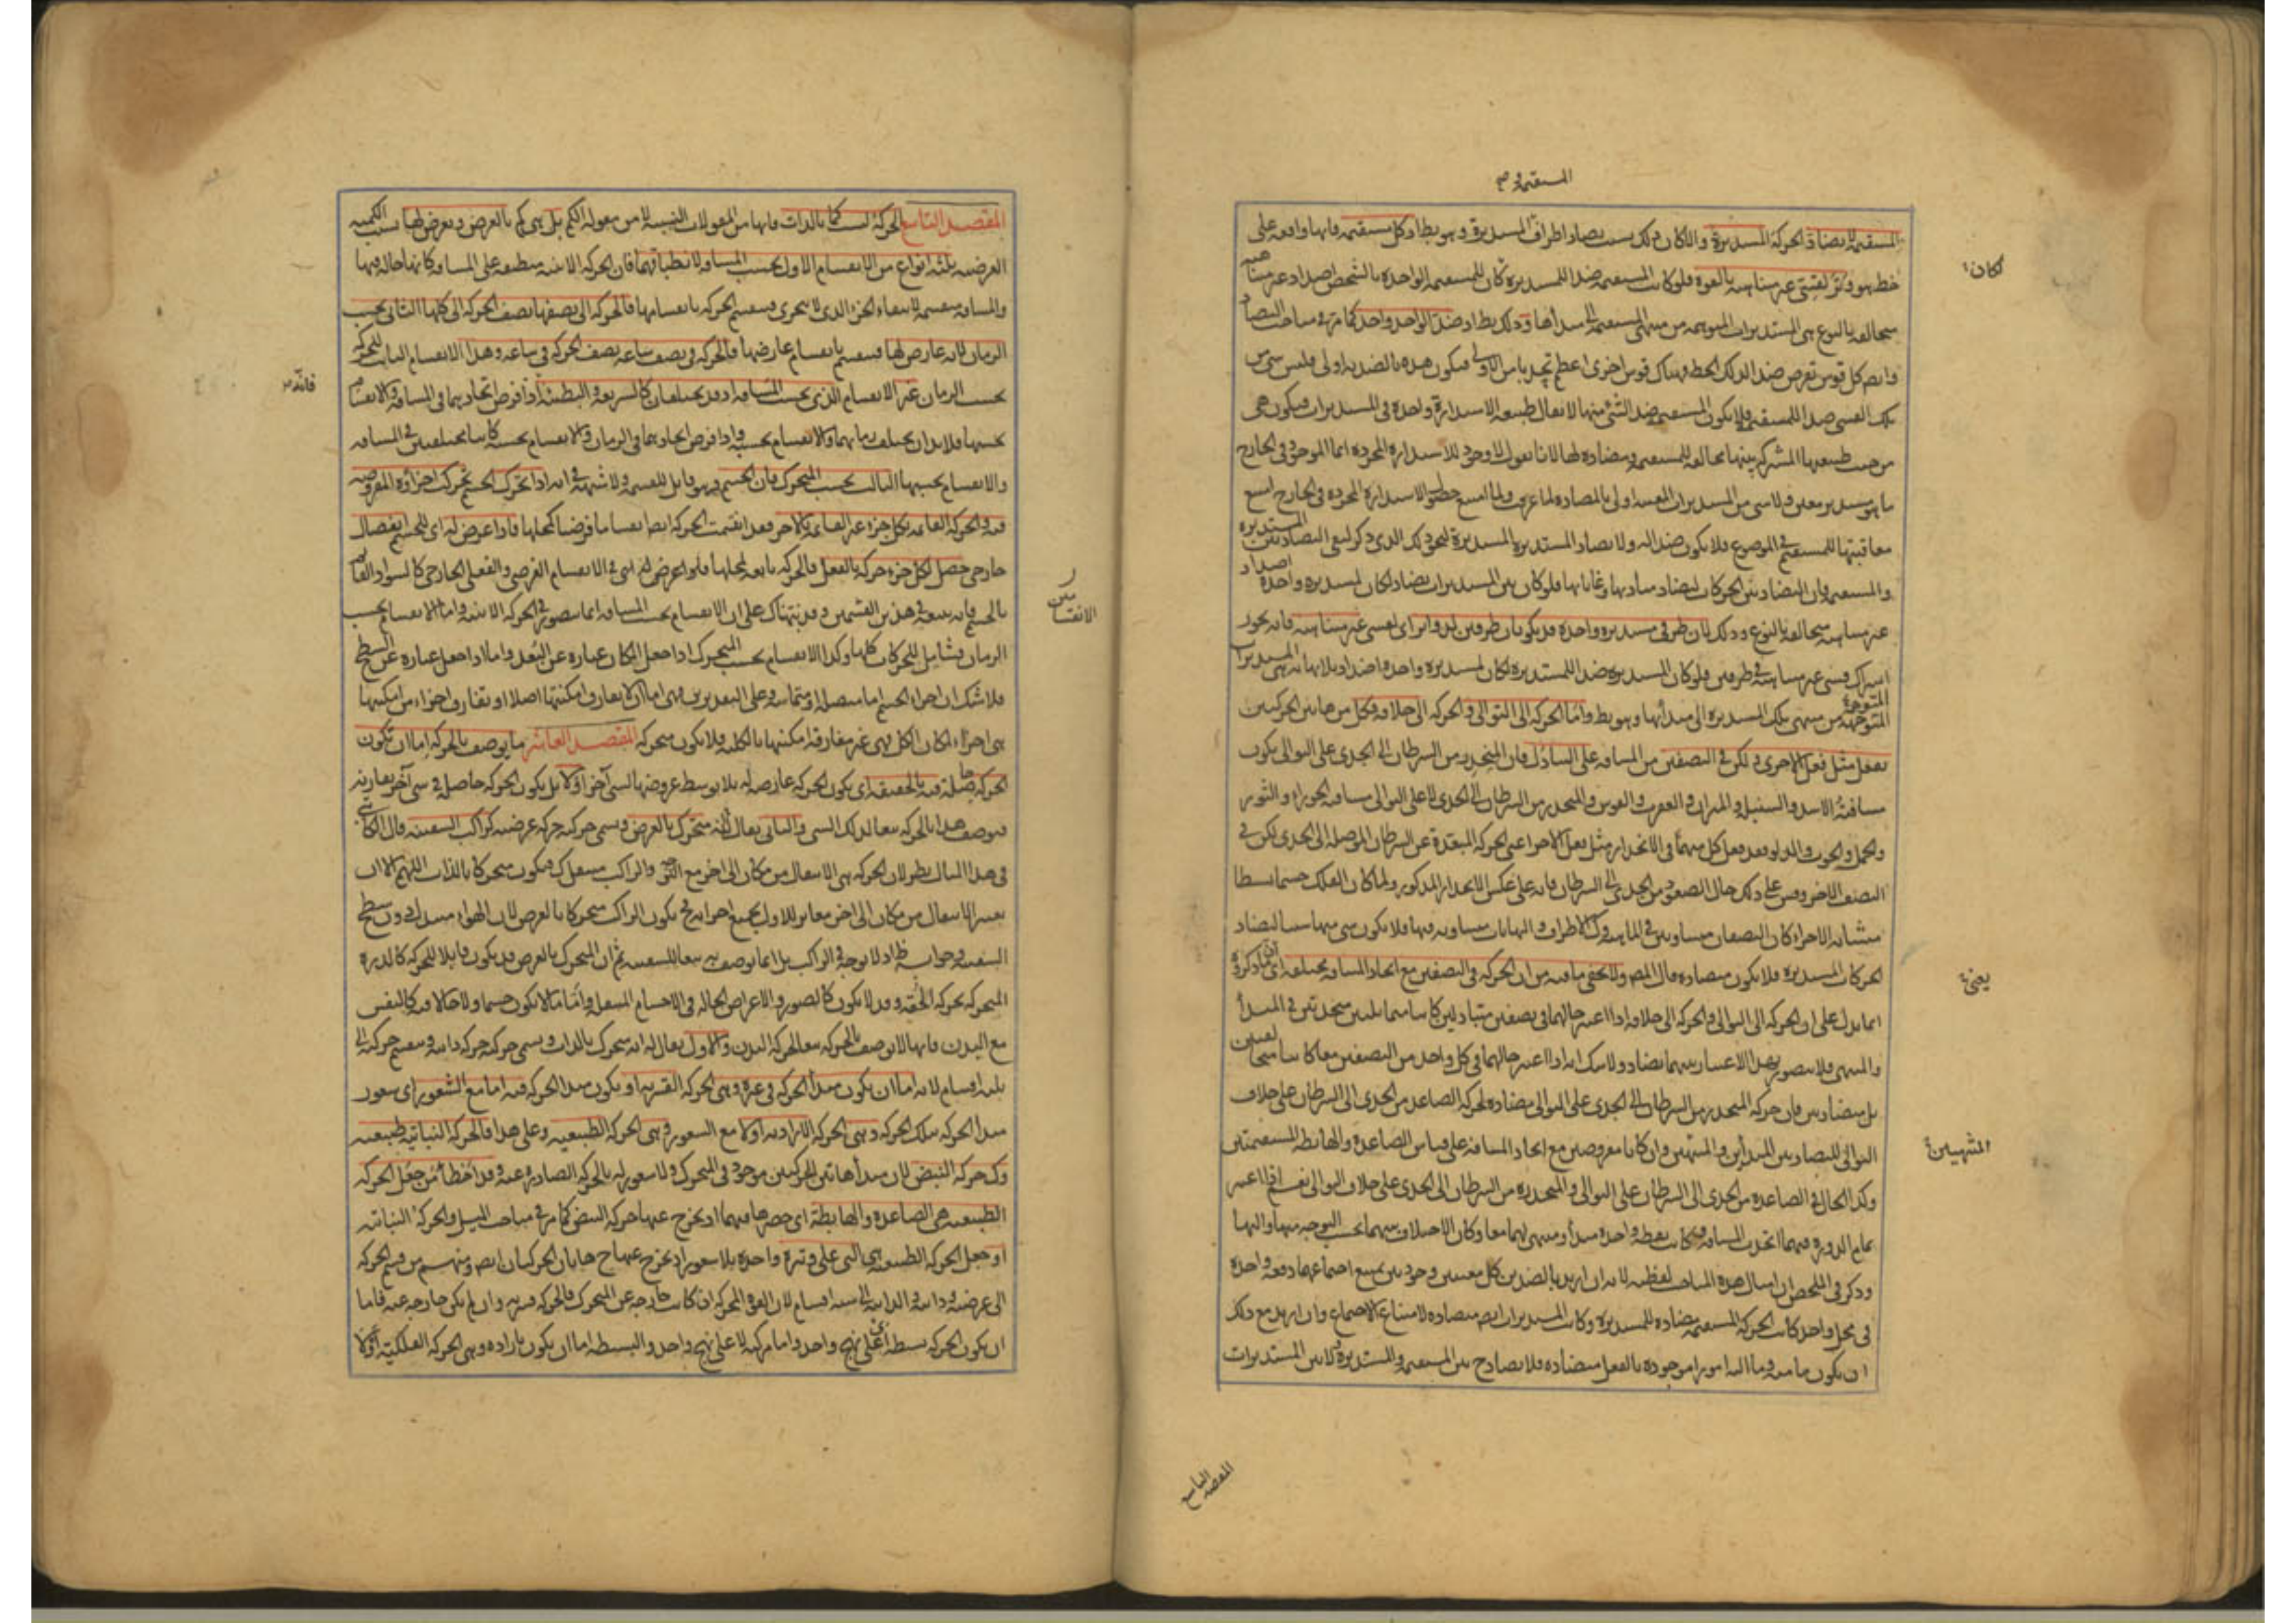 المستقيمة
المستقيمة لا يضاد الحركة المستديرة والا لكان ذلك بسبب تضاد اطراف المستديرة وهو بط اذ كل مستقيمة فانها واقعة على
لكان
خط هو وتر لقسي غير متناهية بالقوة فلو كانت المستقيمة ضدا للمستديرة كان للمستقيمة الواحدة بالشخص اضداد غير متناهية
متخالفة بالنوع هي المستديرات المتوهمة من منتهى المستقيمة الى مبدأها وذلك بط اذ ضد الواحد واحد كما مر في مباحث التضاد
وايضا كل قوس تفرض ضدا لذلك الخط فهناك قوس اخرى اعظم تحدبا من الاولى فيكون هذه بالضدية اولى فليس شيء من
تلك القسي ضدا للمستقيم فلا يكون المستقيمة ضدا لشئ منها لا يقال طبيعة الاستدارة واحدة في المستديرات فيكون هي
من حيث طبيعتها المشتركة بينها مخالفة للمستقيمة ومضادة لها لانا نقول لا وجود للاستدارة المجردة انما الموجود في الخارج
ما هو مستدير معين ولا شيء من المستديرات المعينة اولى بالمضادة لما عرفت ولما امتنع حصول الاستدارة المجردة في الخارج امتنع
معاقبتها للمستقيم في الموضوع فلا يكون ضدا له ولا يضاد المستديرة المستديرة لنحو ذلك الذي ذكر لنفي التضاد بين المستديرة
والمستقيمة فان التضاد بين الحركات لتضاد مباديها وغاياتها فلو كان بين المستديرات تضاد لكان لمستديرة واحدة اضداد
غير متناهية متخالفة بالنوع وذلك لان طرفي مستديرة واحدة قد يكونان طرفين لدوائر اي لقسي غير متناهية فانه يجوز
اشتراك قسي غير متناهية في طرفين فلو كان المستديرة ضدا للمستديرة لكان لمستديرة واحدة اضداد بلا نهاية هي المستديرات
المتوجهة من منتهى تلك المستديرة الى مبدأها وهو بط واما الحركة الى التوالي والحركة الى خلافه فكل من هاتين الحركتين
يفعل مثل فعل الاخرى ولكن في النصفين من المسافة على التبادل فان المنحدر من السرطان الى الجدي على التوالي يكون
مسافته الاسد والسنبلة والميزان والعقرب والقوس والمنحدر من السرطان الى الجدي لا على التوالي مسافته الجوزاء والثور
والحمل والحوت والدلو فقد فعل كل منهما في الانحدار مثل فعل الاخر اعني الحركة المبتعدة عن السرطان الموصلة الى الجدي لكن في
النصف الاخر وقس على ذلك حال الصعود من الجدي الى السرطان فانه على عكس الانحدار المذكور ولما كان الفلك جسما بسيطا
متشابه الاجزاء كان النصفان متساويين في الماهية وكذا الاطراف والنهايات متساوية فيها فلا يكون شيء منها سببا لتضاد
الحركات المستديرة فلا يكون متضادة قال المص ولا يخفى ما فيه من ان الحركة في النصفين مع اتحاد المسافة مختلفة اي ان ما ذكروه
يعني
انما يدل على ان الحركة الى التوالي والحركة الى خلافه اذا اعتبر حالهما في نصفين متبادلين كانتا متماثلتين متحدتين في المبدأ
والمنتهى فلا يتصور بهذا الاعتبار بينهما تضاد ولا شك انه اذا اعتبر حالهما في كل واحد من النصفين معا كانتا مختلفتين
بل متضادتين فان حركة المنحدر من السرطان الى الجدي على التوالي مضادة لحركة الصاعد من الجدي الى السرطان على خلاف
المنتهيين
التوالي لتضاد بين المبدأين والمنتهيين وان كانا مفروضين مع اتحاد المسافة على قياس الصاعدة والهابطة المستقيمتين
وكذا الحال في الصاعدة من الجدي الى السرطان على التوالي والمنحدرة من السرطان الى الجدي على خلاف التوالي نعم اذا اعتبر
تمام الدورة فيهما اتحدت المسافة وكانت نقطة واحدة مبدأ ومنتهى لهما معا وكان الاختلاف بينهما بحسب التوجه منها واليها
وذكر في الملخص ان امثال هذه المباحث لفظية لانه ان اريد بالضدين كل معنيين وجوديين يمتنع اجتماعهما دفعة واحدة
في محل واحد كانت الحركة المستقيمة مضادة للمستديرة وكانت المستديرات ايضا متضادة لامتناع الاجتماع وان اريد مع ذلك
ان يكون ما منه وما اليه امورا موجودة بالفعل متضادة فلا تضاد ح بين المستقيمة والمستديرة ولا بين المستديرات
المقصد التاسع
المقصد التاسع الحركة ليست كما بالذات فانها من المقولات النسبية لا من مقولة الكم بل هي كم بالعرض ويعرض لها بسبب الكمية
العرضية ثلثة انواع من الانقسام الاول بحسب المسافة لانطباقهما فان الحركة الاينية منطبقة على المسافة كانها حالة فيها
والمسافة منقسمة لانتفاء الجزء الذي لا يتجزى فينقسم الحركة بانقسامها فالحركة الى نصفها نصف الحركة الى كلها الثاني بحسب
الزمان فانه عارض لها فينقسم بانقسام عارضها فالحركة في نصف ساعة نصف الحركة في ساعة وهذا الانقسام الثابت للحركة
بحسب الزمان غير الانقسام الذي بحسب المسافة اذ قد يختلفان كالسريعة والبطيئة اذا فرض اتحادهما في المسافة والانقسام
بحسبها فلا بد ان يختلف زمانهما والانقسام بحسبه واذا فرض اتحادهما في الزمان والانقسام بحسبه كانتا مختلفتين في المسافة
والانقسام بحسبها الثالث بحسب المتحرك فان الجسم هو قابل للقسمة ولا شبهة في انه اذا تحرك الجسم تحركت اجزاؤه المفروضة
فيه والحركة القائمة بكل جزء غير القائمة بالاخر فقد انقسمت الحركة ايضا انقساما فرضيا كمحلها فاذا عرض له اي للجسم انفصال
خارجي حصل لكل جزء حركة بالفعل فالحركة تابعة لمحلها فيما عرض له اي في الانقسام الفرضي والفعلي الخارجي كالسواد القائم
الانقسامين
بالجسم فانه يتبعه في هذين القسمين وقد نبهناك على ان الانقسام بحسب المسافة انما يتصور في الحركة الاينية واما الانقسام بحسب
الزمان فشامل للحركات كلها وكذا الانقسام بحسب المتحرك اذا جعل المكان عبارة عن البعد واما اذا جعل عبارة عن السطح
فلا شك ان اجزاء الجسم اما متصلة او متماسة وعلى التقديرين فهي اما ان لا يفارق امكنتها اصلا او تفارق اجزاء من امكنتها
هي اجزاء لمكان الكل فهي غير مفارقة امكنتها بالكلية فلا يكون متحركة المقصد العاشر ما يوصف بالحركة اما ان تكون
الحركة حاصلة فيه بالحقيقة اي يكون الحركة عارضة له بلا توسط عروضها لشيء آخر اولا بل يكون الحركة حاصلة في شيء آخر يقارنه
فيوصف هذا بالحركة تبعا لذلك الشيء والثاني يقال له انه متحرك بالعرض ويسمى حركته حركة عرضية كراكب السفينة قال الكاتبي
في هذا المثال نظر لان الحركة هي الانتقال من مكان الى اخر مع التوجه والراكب منتقل كذلك فيكون متحركا بالذات اللهم الا ان
يعتبر الانتقال من مكان الى اخر مغاير للاول بجميع اجزائه فح يكون الراكب متحركا بالعرض لان الهواء متبدل دون سطح
السفينة ثم ان المتحرك بالعرض قد يكون قابلا للحركة كالدرة
المتحركة بحركة الحقة وقد لا يكون كالصور والاعراض الحالة في الاجسام المنتقلة واما ما لا يكون جسما ولا حالا فيه كالنفس
مع البدن فانها لا توصف بالحركة تبعا لحركة البدن والاول يقال له انه متحرك بالذات ويسمى حركته حركة ذاتية وينقسم حركته الى
ثلثة اقسام لانه اما ان يكون مبدأ الحركة في غيره وهي الحركة القسرية او يكون مبدأ الحركة فيه اما مع الشعور اي شعور
مبدأ الحركة بتلك الحركة وهي الحركة الارادية اولا مع الشعور وهي الحركة الطبيعية وعلى هذا فالحركة النباتية طبيعية
وكذا حركة النبض لان مبدأ هاتين الحركتين موجود في المتحرك ولا شعور له بالحركة الصادرة عنه وقد اخطأ من جعل الحركة
الطبيعية هي الصاعدة والهابطة اي حصرها فيهما اذ يخرج عنها حركة النبض كما مر في مباحث الميل والحركة النباتية
او جعل الحركة الطبيعية هي التي على وتيرة واحدة بلا شعور اذ يخرج عنها ح هاتان الحركتان ايضا ومنهم من قسم الحركة
الى عرضية وذاتية والذاتية الى ستة اقسام لان القوة المحركة ان كانت خارجة عن المتحرك فالحركة قسرية وان لم تكن خارجة عنه فاما
ان يكون الحركة بسيطة اي على نهج واحد واما مركبة لا على نهج واحد والبسيطة اما ان يكون بارادة وهي الحركة الفلكية اولا